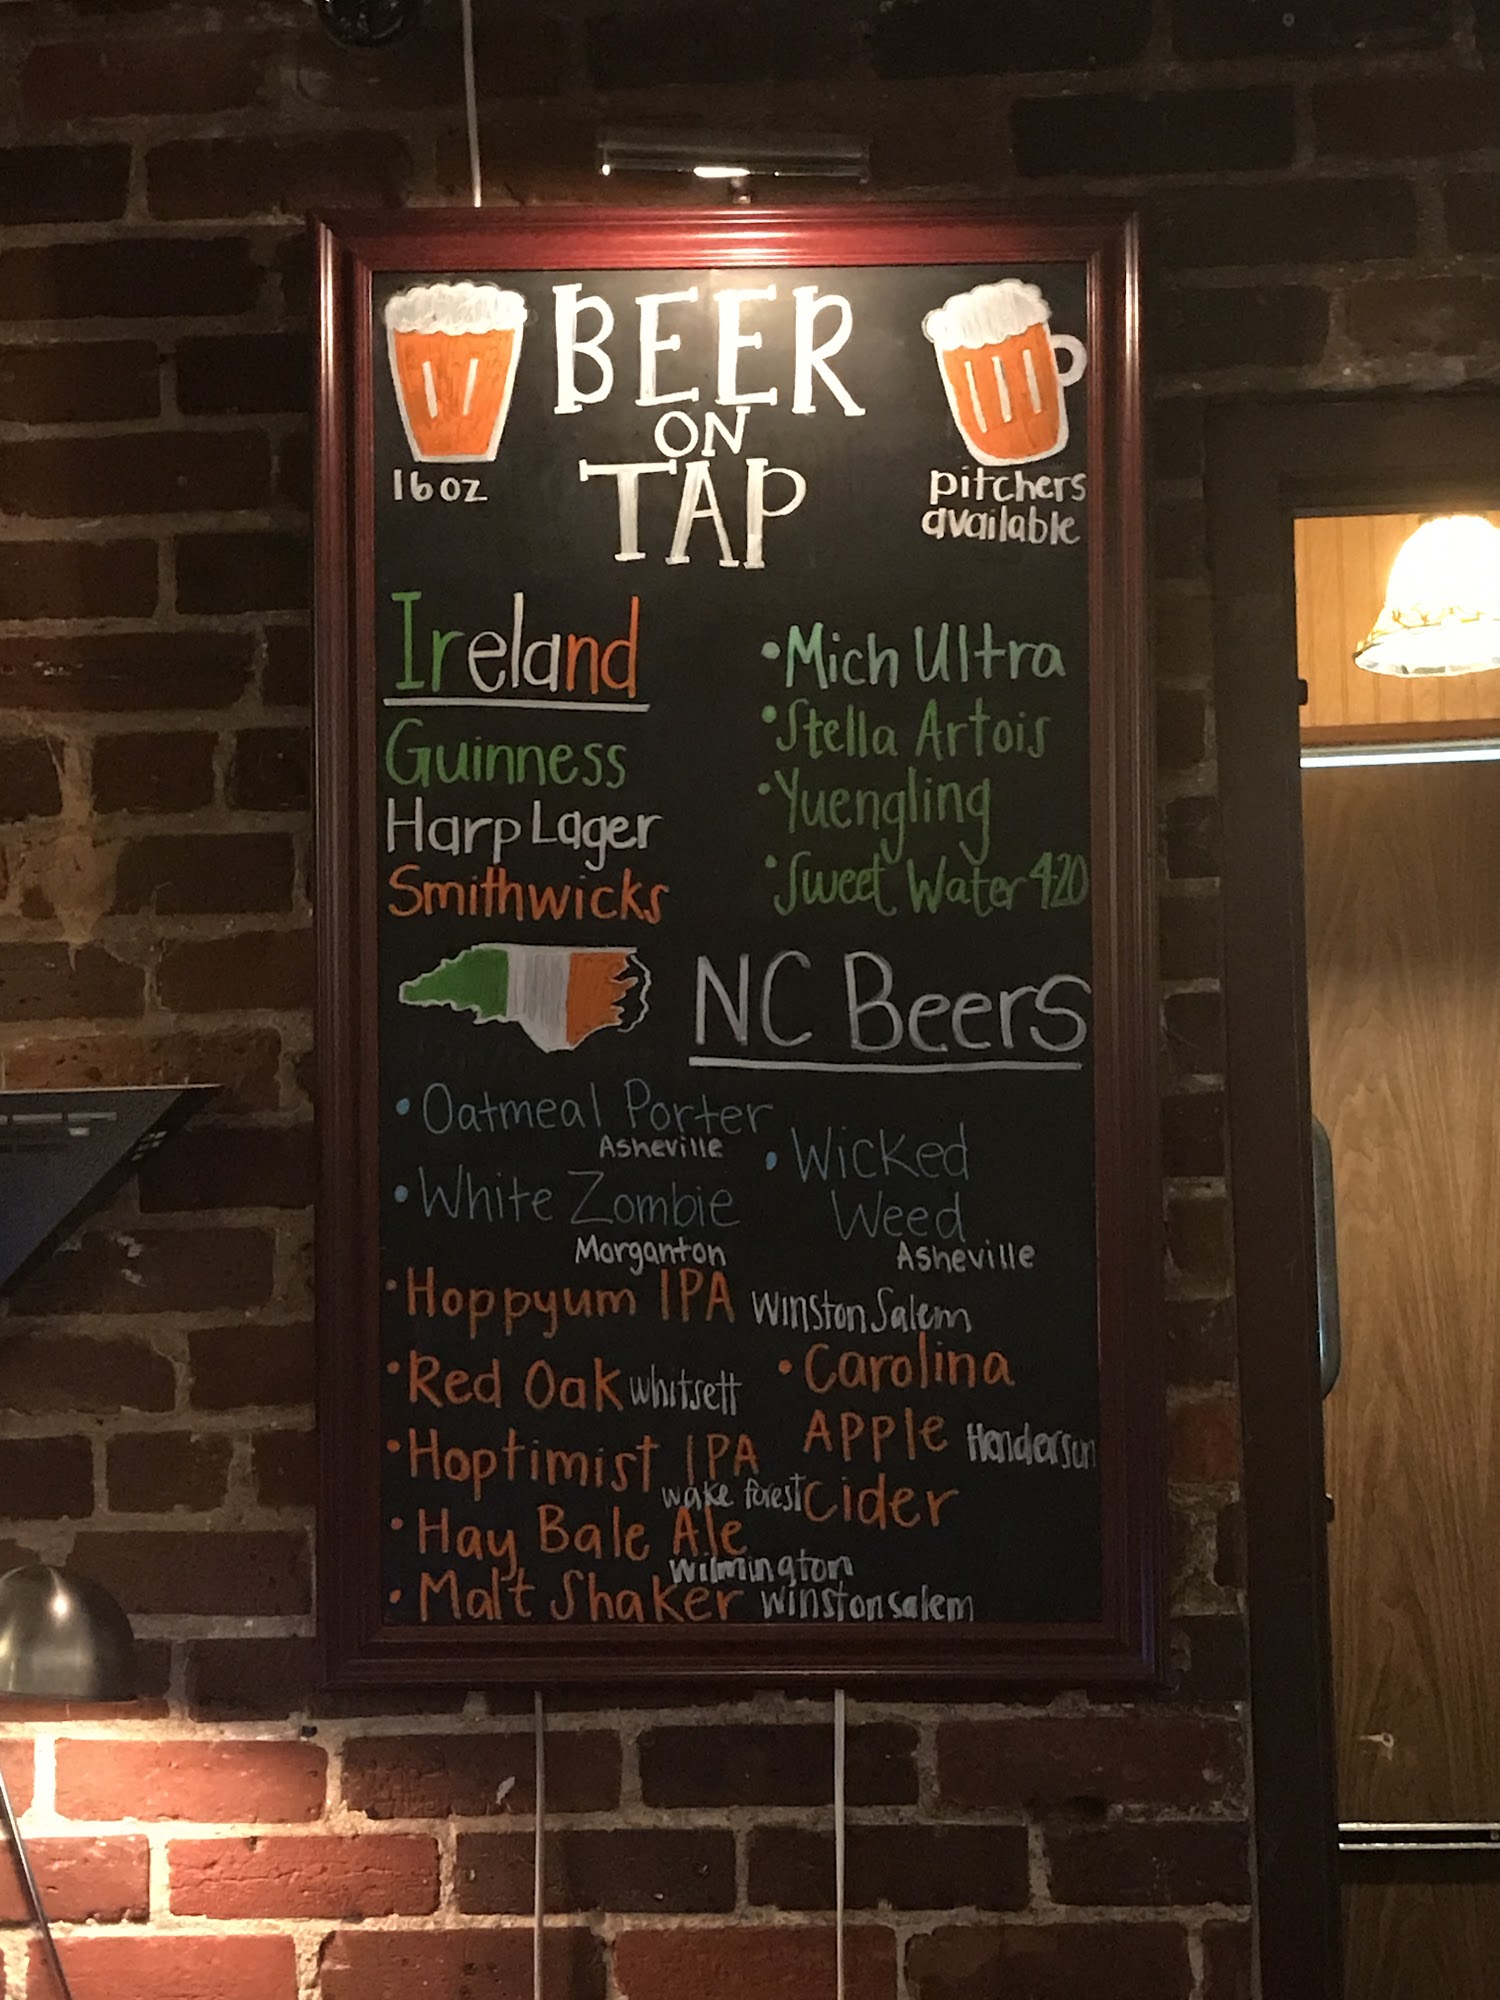 BEER
ON
TAP
16oz
pitchers
available
Ireland
Guinness
Harp Lager
Smithwicks
•Mich Ultra
•Stella Artois
•Yuengling
•Sweet Water 420
NC Beers
•Oatmeal Porter
Asheville
•White Zombie
Morganton
•Wicked
Weed
Asheville
•Hoppyum IPA Winston Salem
•Red Oak Whitsett
•Hoptimist IPA
wake forest
•Carolina
Apple Henderson
Cider
•Hay Bale Ale
Wilmington
•Malt Shaker winston salem